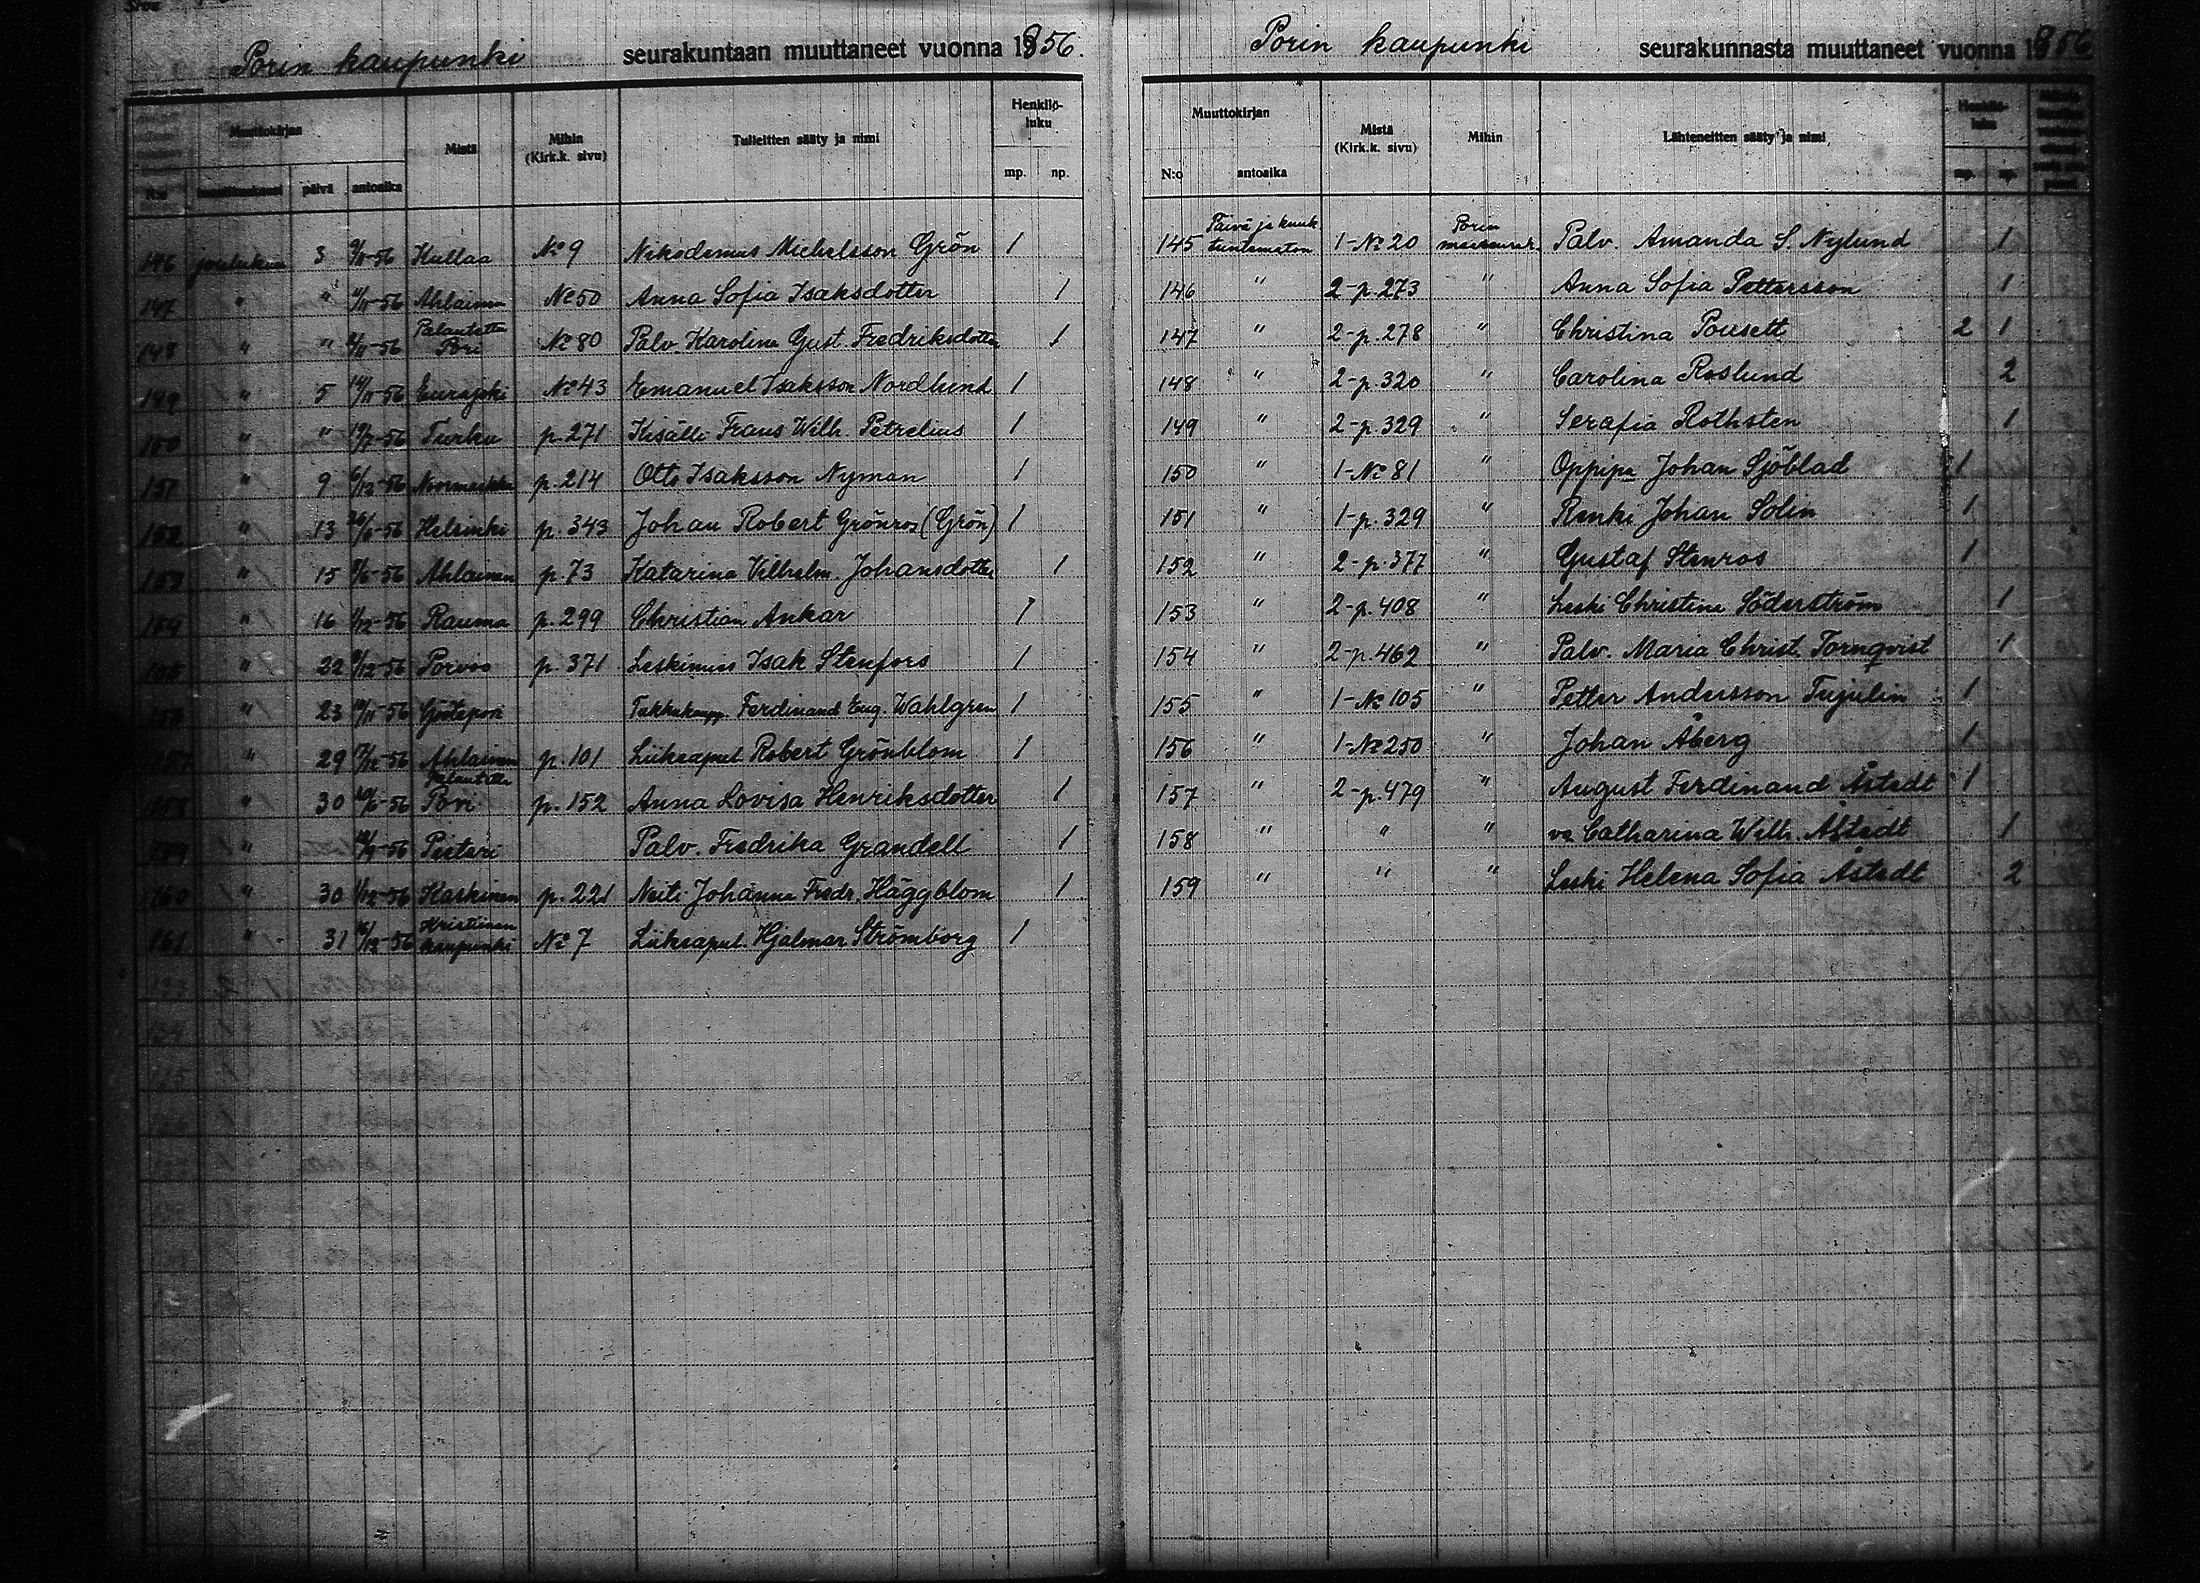 Porin kaupunki seurakuntaan muuttaneet vuonna 1856.
Muuttokirjan Mistä Mihin (Kirk.k. sivu) Tulleitten sääty ja nimi Henkilö-luku
N:o päivä antoaika mp. np.
146 joulukuu 3 Kullaa No 9 Nikodemus Michelsson Grön 1
147 " " Ahlainen No 50 Anna Sofia Isaksdotter 1
148 " " Palautettu Pori No 80 Palv. Karolina Gust. Fredriksdotter 1
149 " 5 14/11-56 Eurajoki No 43 Emanuel Isaksson Nordlund 1
150 " " Turku p. 271 Kisälli Frans Wilh. Petrelius 1
151 " 9 6/12-56 Noormarkku p. 214 Otto Isaksson Nyman 1
152 " 13 Helsinki p. 343 Johan Robert Grönros (Grön) 1
153 " 15 Ahlainen p. 73 Katarina Vilhelm. Johansdotter 1
154 " 16 Rauma p. 299 Christian Ankar 1
155 " 22 Porvoo p. 371 Leskimies Isak Stenfors 1
156 " 23 Ferdinand Eug. Wahlgren 1
157 " 29 17/12-56 Ahlainen p. 101 Liikeapul. Robert Grönblom 1
158 " 30 Palautettu Pori p. 152 Anna Lovisa Henriksdotter 1
159 " Pietari Palv. Fredrika Grandell 1
160 " 30 Kaskinen p. 221 Neiti Johanna Fredr. Häggblom 1
161 " 31 16/12-56 Kristiinan kaupunki No 7 Liikeapul. Hjalmar Strömborg 1
Porin kaupunki seurakunnasta muuttaneet vuonna 1856
Muuttokirjan Mistä (Kirk.k. sivu) Mihin Lähteneitten sääty ja nimi Henkilö-luku
N:o antoaika mp. np.
145 Päivä ja kuuk. tuntematon 1-No 20 Porin maaseurak. Palv. Amanda S. Nylund 1
146 " 2-p. 273 " Anna Sofia Pettersson 1
147 " 2-p. 278 " Christina Pousett 2 1
148 " 2-p. 320 " Carolina Roslund 2
149 " 2-p. 329 " Serafia Rothsten 1
150 " 1-No 81 " Oppipa Johan Sjöblad 1
151 " 1-p. 329 " Renki Johan Solin 1
152 " 2-p. 377 " Gustaf Stenros 1
153 " 2-p. 408 " Leski Christina Söderström 1
154 " 2-p. 462 " Palv. Maria Christ. Tornqvist 1
155 " 1-No 105 " Petter Andersson Tujulin 1
156 " 1-No 250 " Johan Åberg 1
157 " 2-p. 479 " August Ferdinand Åstedt 1
158 " " " va Catharina Wilh. Åstedt 1
159 " " " Leski Helena Sofia Åstedt 2